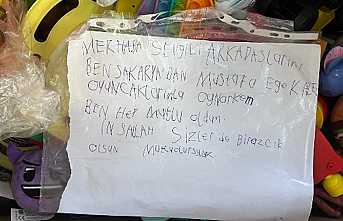 MERHABA SEVGİLİ ARKADAŞLARIM
BEN SAKARYADAN MUSTAFA EGE
OYUNCAKLARIMLA OYNARKEN
BEN HEP MUTLU OLDUM
İNŞALLAH SİZLER DE BİRAZCIK
OLSUN MUTLU OLURSUNUZ